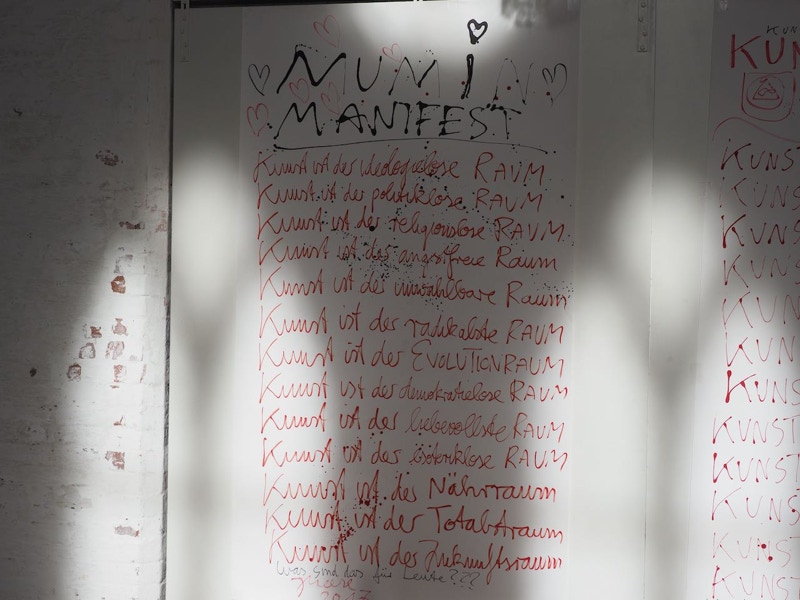 MUMIN
MANIFEST
Kunst ist der ideologielose RAUM
Kunst ist der politiklose RAUM
Kunst ist der religionslose RAUM
Kunst ist der angstfreie Raum
Kunst ist der unwählbare Raum
Kunst ist der radikalste RAUM
Kunst ist der EVOLUTIONRAUM
Kunst ist der demokratielose RAUM
Kunst ist der liebevollste RAUM
Kunst ist der esoteriklose RAUM
Kunst ist der Nährraum
Kunst ist der Totalstraum
Kunst ist der Zukunftsraum
was sind das für Leute???
2017
KUN
KUN
KUNST
KUNS
KUNS
KUNS
KUN
KUN
KUNS
KUNST
KUNS
KUNS
KUNS
KUNS